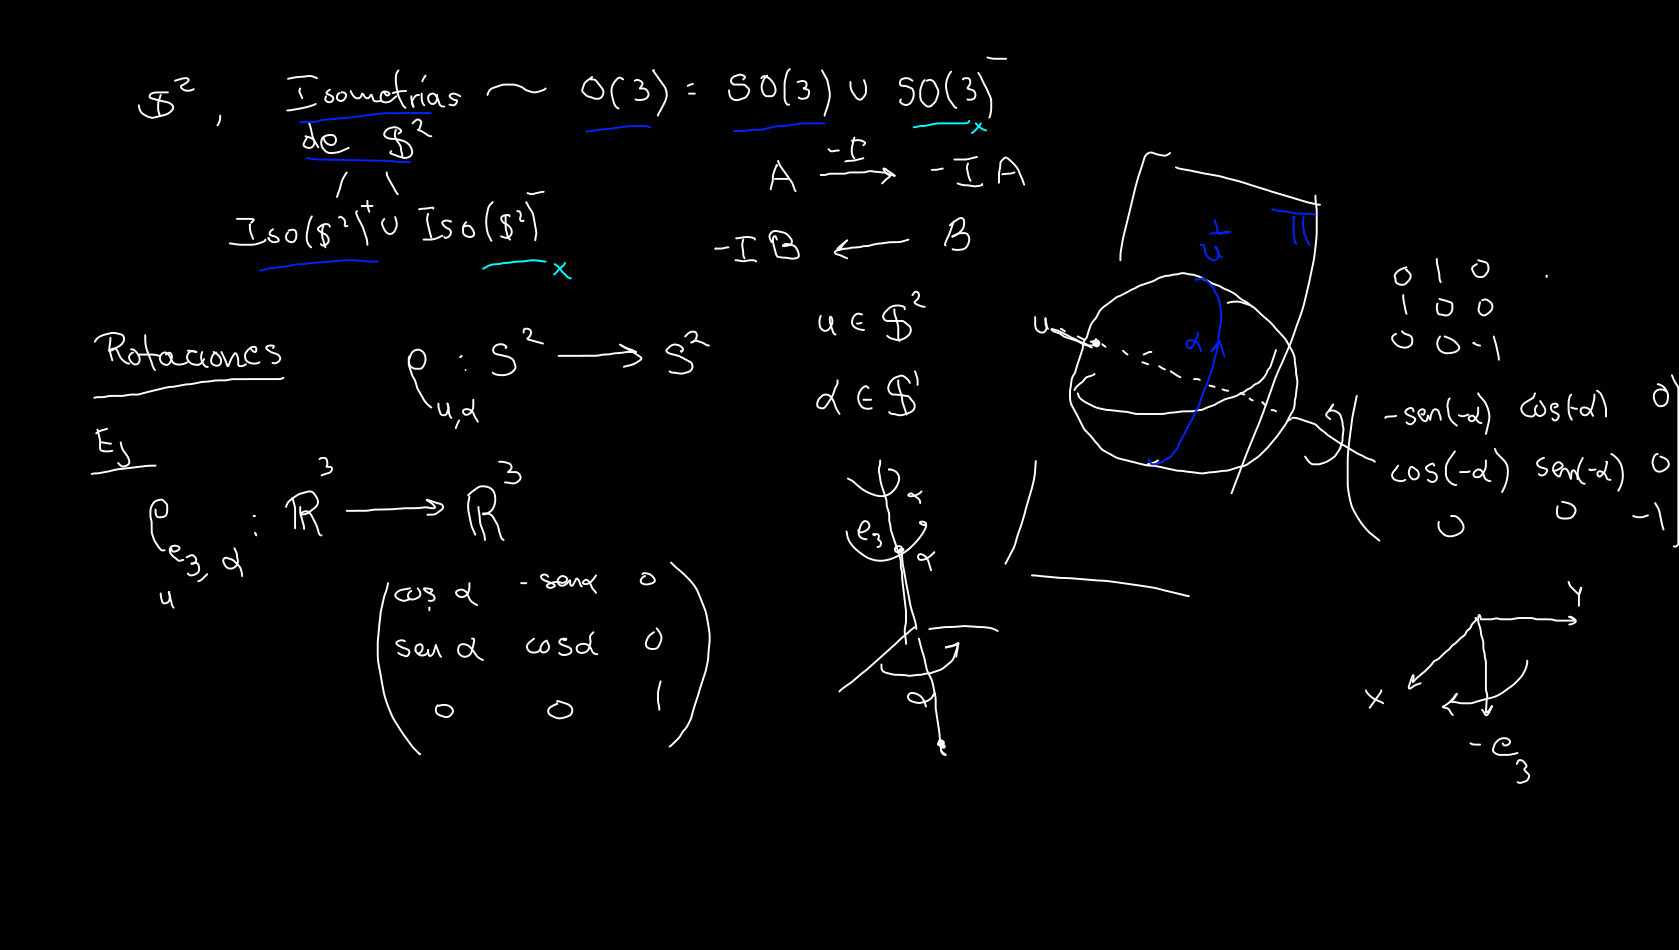 𝕊², Isometrías ~ O(3) = SO(3) ∪ SO(3)⁻
de 𝕊²
Iso(𝕊²)⁺ ∪ Iso(𝕊²)⁻
x
x
A —-I→ -IA
-IB ← B
Rotaciones
ρ_{u,α} : S² → S²
u ∈ 𝕊²
α ∈ 𝕊¹
Ej
ρ_{e₃,α} : ℝ³ → ℝ³
u
cos α -sen α 0
sen α cos α 0
0 0 1
α
e₃
α
α
u
u^⊥
Π
α
0 1 0
1 0 0
0 0 -1
-sen(-α) cos(-α) 0
cos(-α) sen(-α) 0
0 0 -1
Y
X
-e₃